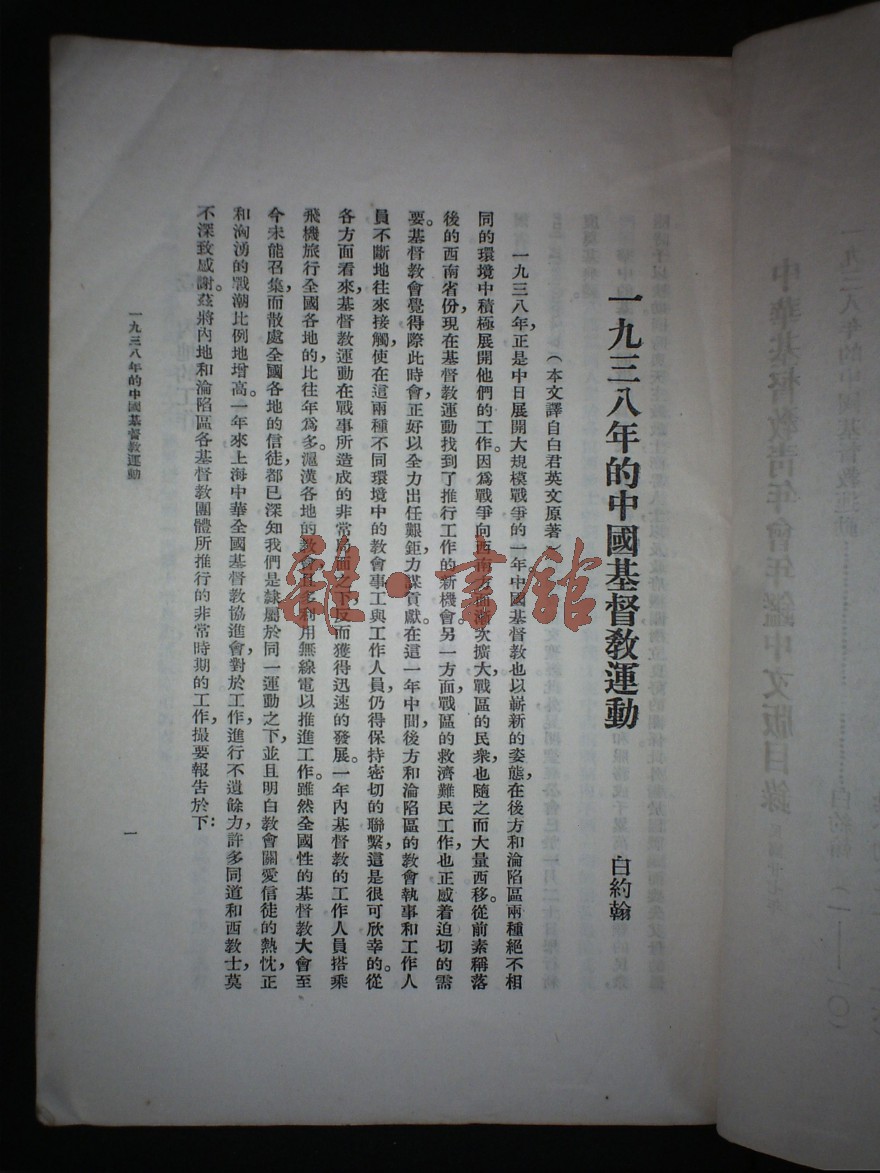 一九三八年的中國基督敎運動
白約翰
（本文譯自白君英文原著）
一九三八年，正是中日展開大規模戰爭的一年，中國基督敎也以嶄新的姿態，在後方和淪陷區兩種絕不相
同的環境中積極展開他們的工作。因爲戰爭向西南方面漸次擴大，戰區的民衆，也隨之而大量西移。從前素稱落
後的西南省份，現在基督敎運動找到了推行工作的新機會。另一方面，戰區的救濟難民工作，也正感着迫切的需
要。基督敎會覺得際此時會，正好以全力出任艱鉅，力謀貢獻。在這一年中間，後方和淪陷區的敎會執事和工作人
員不斷地往來接觸，使在這兩種不同環境中的敎會事工與工作人員，仍得保持密切的聯繫，這是很可欣幸的。從
各方面看來，基督敎運動在戰事所造成的非常局面之下，反而獲得迅速的發展。一年內基督敎的工作人員搭乘
飛機旅行全國各地的，比往年爲多。滬漢各地的敎會且多利用無線電以推進工作。雖然全國性的基督敎大會至
今未能召集，而散處全國各地的信徒，都已深知我們是隸屬於同一運動之下，並且明白敎會關愛信徒的熱忱，正
和洶湧的戰潮比例地增高。一年來上海中華全國基督敎協進會，對於工作，進行不遺餘力，許多同道和西敎士，莫
不深致感謝。茲將內地和淪陷區各基督敎團體所推行的非常時期的工作，撮要報告於下：
一九三八年的中國基督敎運動
一
雜·書館
中華基督敎靑年會年鑑中文版目錄